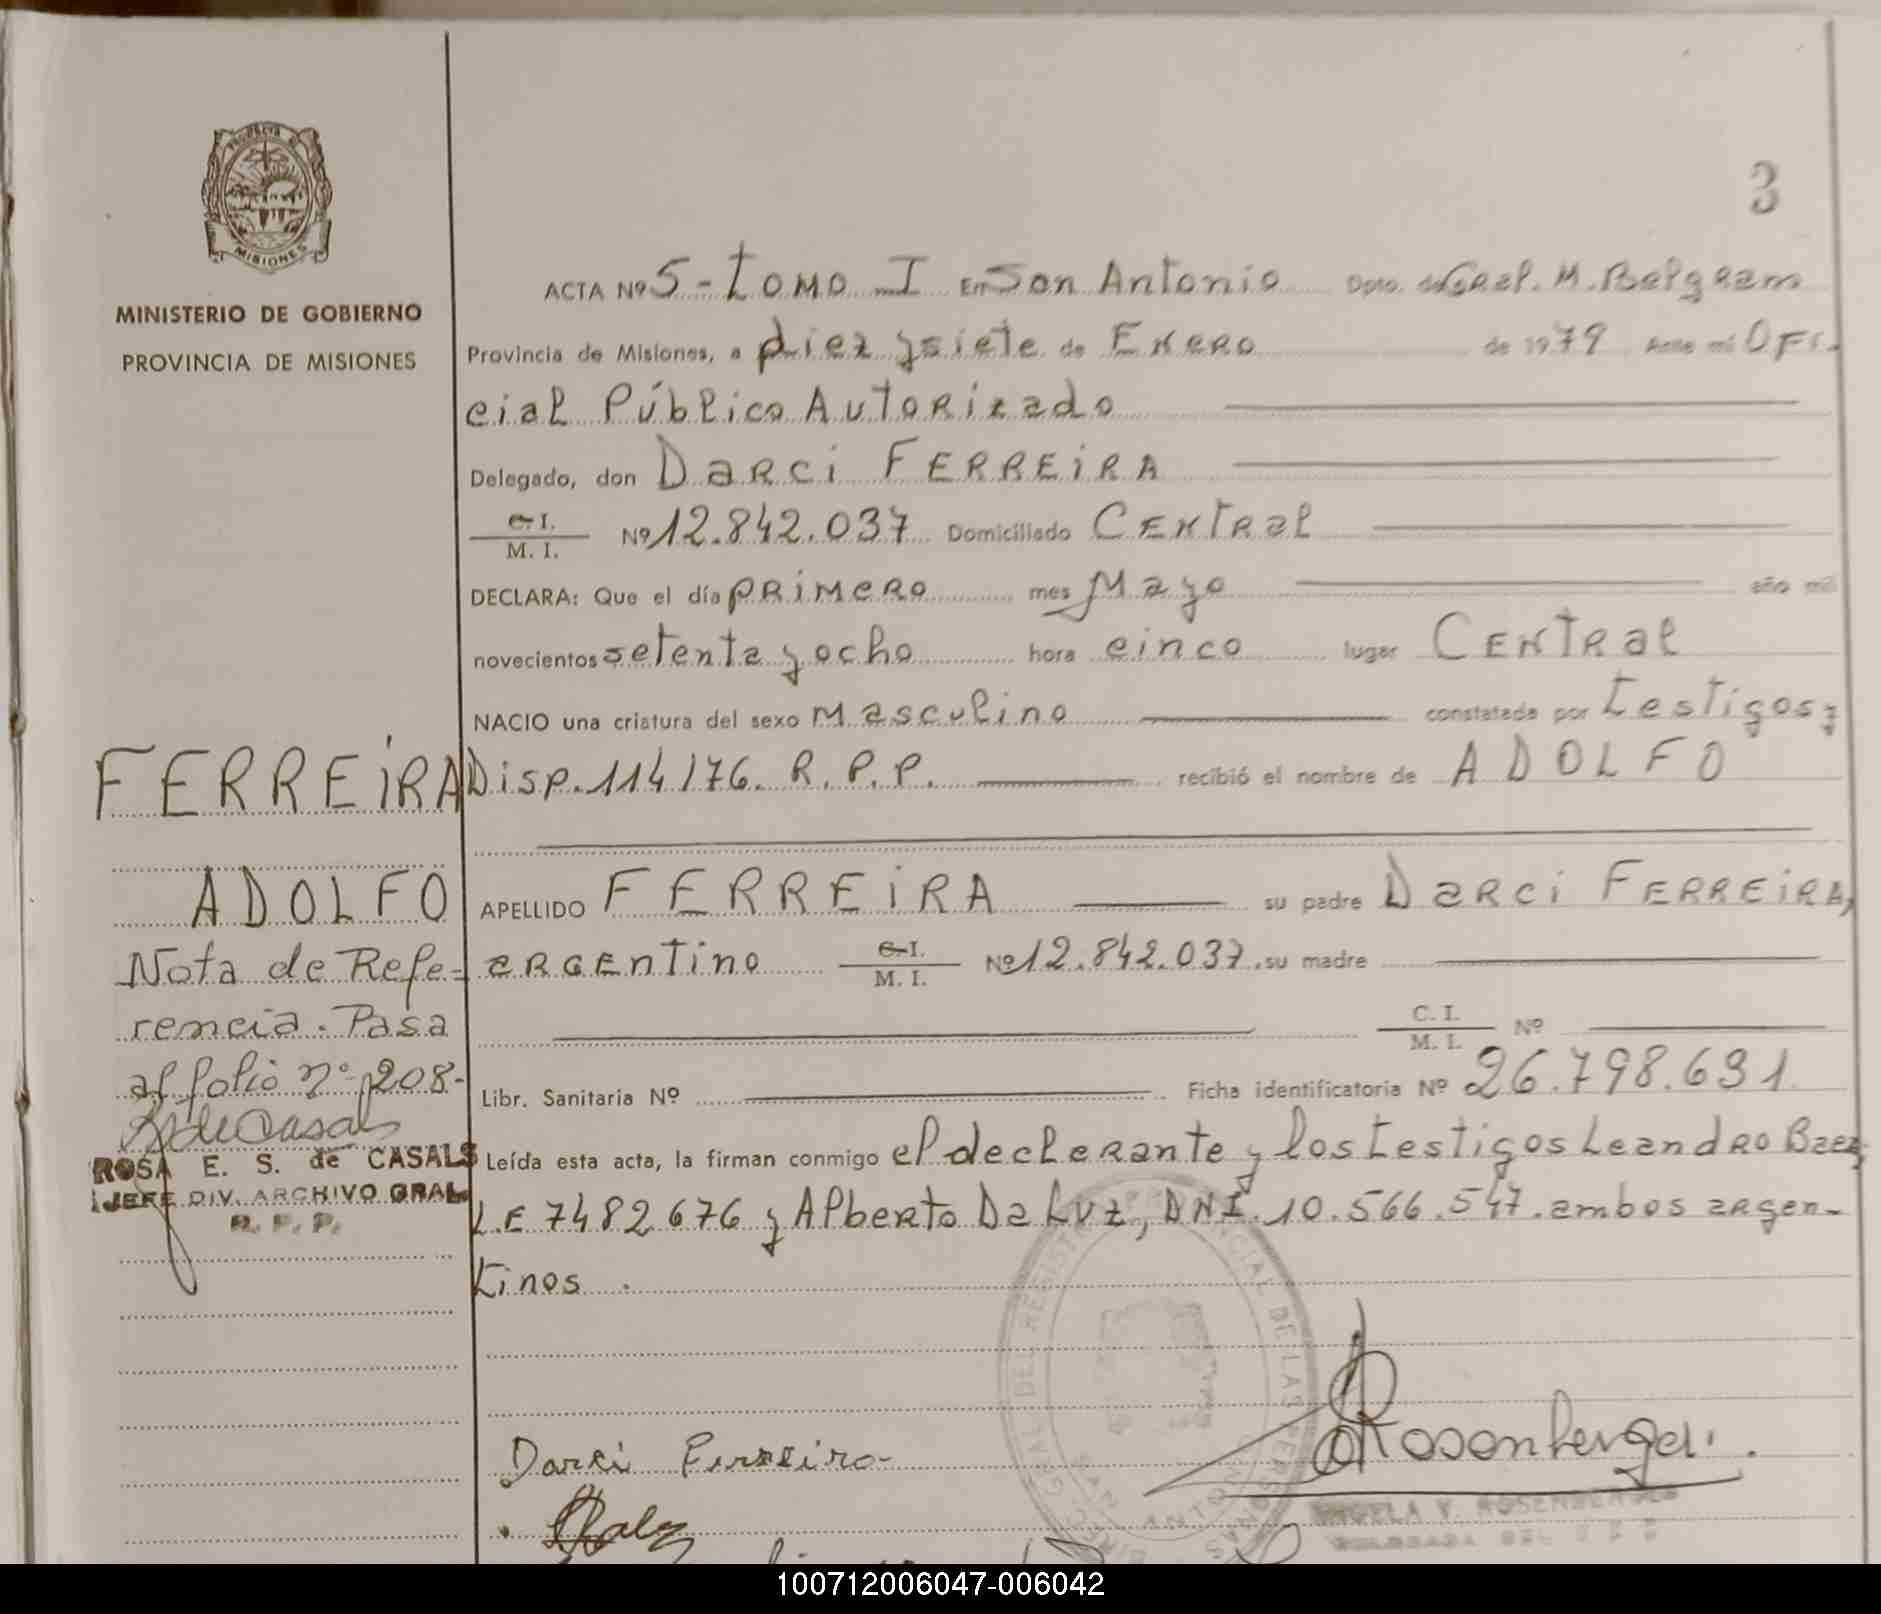 PROVINCIA DE
MISIONES
MINISTERIO DE GOBIERNO
PROVINCIA DE MISIONES
3
ACTA Nº 5 - Tomo I En San Antonio Dpto. de Gral. M. Belgrano
Provincia de Misiones, a diez y siete de Enero de 1979 Ante mi Ofi-
cial Público Autorizado
Delegado, don Darci FERREIRA
C. I. / M. I. Nº 12.842.037 Domiciliado Central
DECLARA: Que el día primero mes Mayo año mil
novecientos setenta y ocho hora cinco lugar Central
NACIO una criatura del sexo masculino constatada por testigos y
Disp. 114/76. R. P. P. recibió el nombre de ADOLFO
APELLIDO FERREIRA su padre Darci FERREIRA,
argentino C. I. / M. I. Nº 12.842.037. su madre
C. I. / M. I. Nº
Libr. Sanitaria Nº Ficha identificatoria Nº 26.798.691
Leída esta acta, la firman conmigo el declarante y los testigos Leandro Baez,
L.E 7482676 y Alberto Da Luz, DNI. 10.566.547. ambos argen-
tinos.
FERREIRA
ADOLFO
Nota de Refe-
rencia. Pasa
al folio nº 208-
RdeCasals
ROSA E. S. de CASALS
JEFE DIV. ARCHIVO GRAL.
R. P. P.
Darci Ferreira
Rosenberger
ANGELA V. ROSENBERGER
100712006047-006042